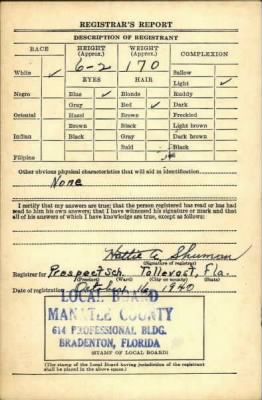 REGISTRAR'S REPORT
DESCRIPTION OF REGISTRANT
RACE HEIGHT (Approx.) WEIGHT (Approx.) COMPLEXION
6-2 170
White ✓ EYES HAIR Sallow
Light ✓
Negro Blue ✓ Blonde Ruddy
Gray Red ✓ Dark
Oriental Hazel Brown Freckled
Brown Black Light brown
Indian Black Gray Dark brown
Bald Black
Filipino
Other obvious physical characteristics that will aid in identification
None
I certify that my answers are true; that the person registered has read or has had
read to him his own answers; that I have witnessed his signature or mark and that
all of his answers of which I have knowledge are true, except as follows:
Hattie A. Shuman
(Signature of registrar)
Registrar for Prospect Sch. Tallevast, Fla.
(Precinct) (City or county) (State)
Date of registration October 16, 1940
LOCAL BOARD
MANATEE COUNTY
614 PROFESSIONAL BLDG.
BRADENTON, FLORIDA
(STAMP OF LOCAL BOARD)
(The stamp of the Local Board having jurisdiction of the registrant
shall be placed in the above space.)